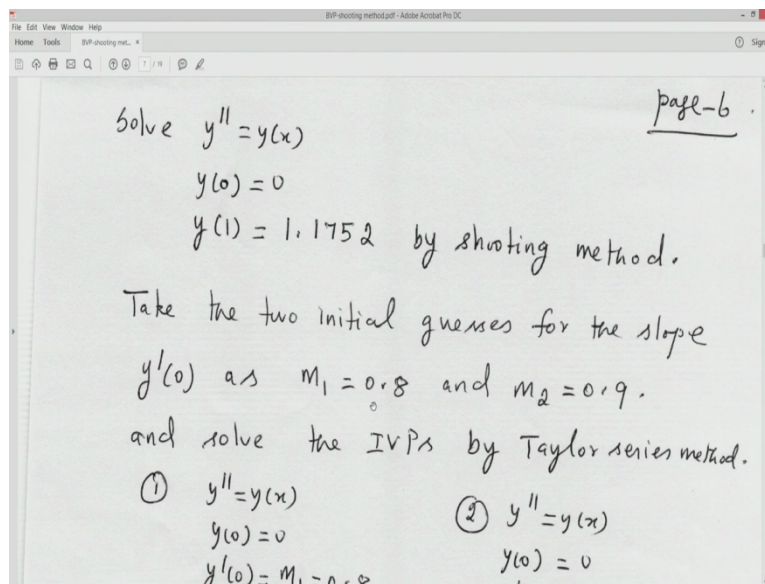 BVP-shooting method.pdf - Adobe Acrobat Pro DC
File Edit View Window Help
Home Tools BVP-shooting met... × Sign
7 / 19
page-6.
Solve y'' = y(x)
y(0) = 0
y(1) = 1.1752 by shooting method.
Take the two initial guesses for the slope
y'(0) as m₁ = 0.8 and m₂ = 0.9.
and solve the IVPs by Taylor series method.
① y'' = y(x) ② y'' = y(x)
y(0) = 0 y(0) = 0
y'(0) = m₁ = 0.8